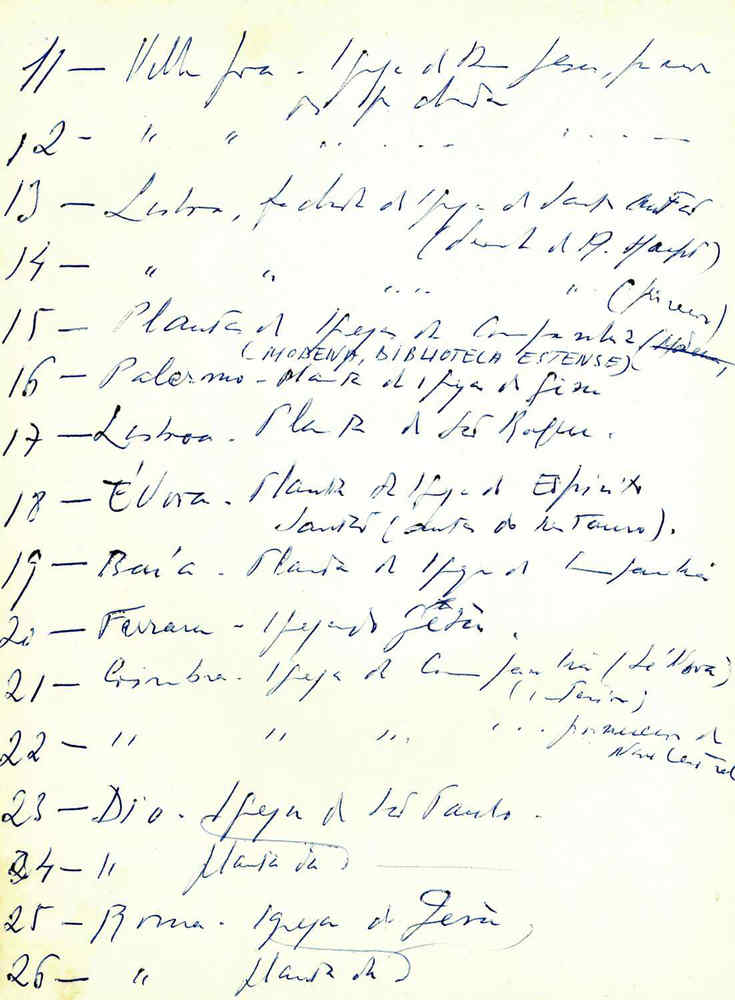 11 — Igreja do Bom Jesus,
12 — " "
13 — Lisboa, fachada da Igreja de Santo Antão
14 — " " " " "
15 — Planta da Igreja da Companhia
(MODENA, BIBLIOTECA ESTENSE)
16 — Palermo - Planta da Igreja do Gesu
17 — Lisboa - Planta de São Roque.
18 — Évora - Planta da Igreja do Espirito
Santo (antes do restauro).
19 — Baía - Planta da Igreja da Companhia
20 — Ferrara - Igreja do Gesù.
21 — Coimbra - Igreja da Companhia (Sé Nova)
(interior)
22 — " " " " pormenor da
Nave Central
23 — Dio - Igreja de São Paulo.
24 — " planta da
25 — Roma - Igreja do Gesù
26 — " planta da